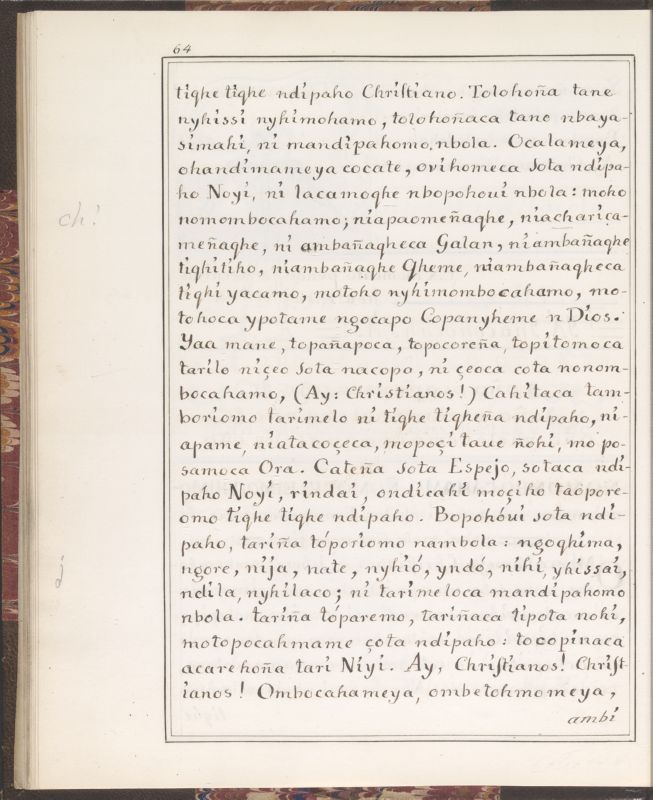 64
tighe tighe ndipaho Chriſtiano. Tolohoña tane
nyhissi nyhimohamo, tolohoñaca tane nbaya-
simahi, ni mandipahomo.nbola. Ocalameya,
ohandimameya cocate, ovihomeca sota ndipa-
ho Noyi, ni lacamoqhe nbopohoui nbola: moho
nomombocahamo; niapaomeñaqhe, niachariça-
meñaqhe, ni ambañaqheca Galan, niambañaqhe
tiqhitiho, niambañaqhe Qheme, niambañaqheca
tiqhi yacamo, motoho nyhimombocahamo, mo-
tohoca ypotame ngocapo Copanyheme n Dios.
Yaa mane, topañapoca, topocoreña, topitomoca
tarilo niçeo sota nacopo, ni çeoca cota nonom-
bocahamo, (Ay: Christianos!) Cahitaca tam-
boriomo tarimelo ni tiqhe tiqheña ndipaho, ni-
apame, niatacoçeca, mopoçi taue ñohi, mo po-
samoca Ora. Cateña sota Espejo, sotaca ndi-
paho Noyi, rindai, ondicahi moçiho taopore-
omo tiqhe tiqhe ndipaho. Bopohóui sota ndi-
paho, tariña tóporiomo nambola: ngoqhima,
ngore, nija, nate, nyhió, yndó, nihi, yhissai,
ndila, nyhilaco; ni tarimeloca mandipahomo
nbola. tariña tóparemo, tariñaca tipota nohi,
motopocahmame çota ndipaho: tocopinaca
acarehoña tari Niyi. Ay, Chriſtianos! Chriſt-
ianos! Ombocahameya, ombetohmomeya,
ambi
ch!